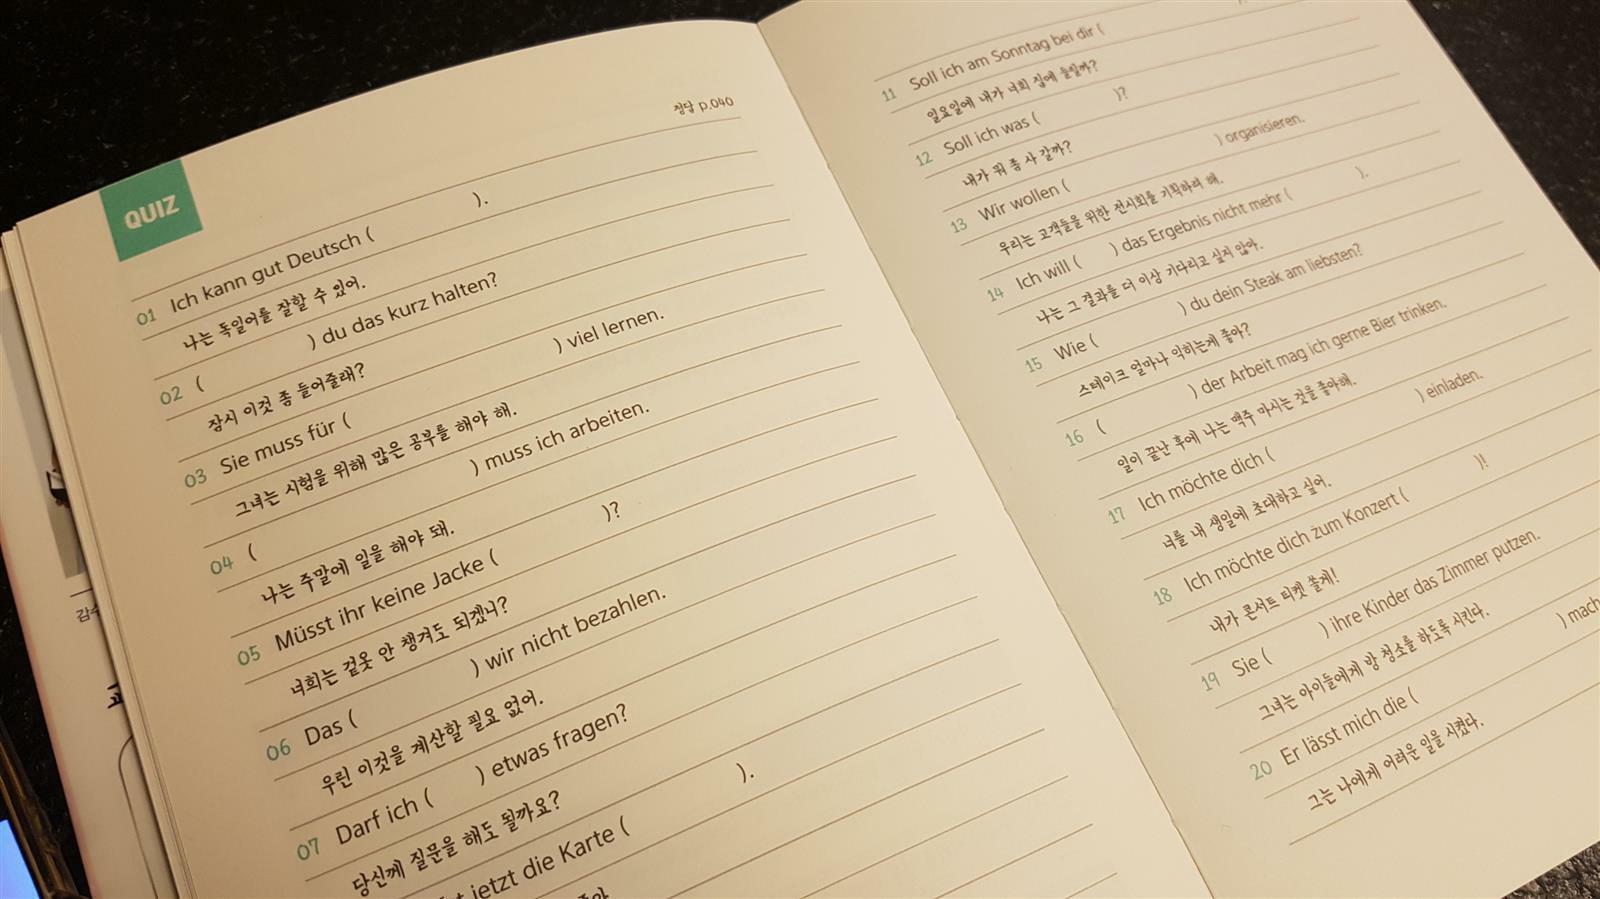 정답 p.040
QUIZ
01 Ich kann gut Deutsch ( ).
나는 독일어를 잘할 수 있어.
02 ( ) du das kurz halten?
잠시 이것 좀 들어줄래?
03 Sie muss für ( ) viel lernen.
그녀는 시험을 위해 많은 공부를 해야 해.
04 ( ) muss ich arbeiten.
나는 주말에 일을 해야 돼.
05 Müsst ihr keine Jacke ( )?
너희는 겉옷 안 챙겨도 되겠니?
06 Das ( ) wir nicht bezahlen.
우린 이것을 계산할 필요 없어.
07 Darf ich ( ) etwas fragen?
당신께 질문을 해도 될까요?
jetzt die Karte ( ).
11 Soll ich am Sonntag bei dir (
일요일에 내가 너희 집에 들릴까?
12 Soll ich was ( )?
내가 뭐 좀 사 갈까?
13 Wir wollen ( ) organisieren.
우리는 고객들을 위한 전시회를 기획하려 해.
14 Ich will ( ) das Ergebnis nicht mehr ( ).
나는 그 결과를 더 이상 기다리고 싶지 않아.
15 Wie ( ) du dein Steak am liebsten?
스테이크 얼마나 익히는게 좋아?
16 ( ) der Arbeit mag ich gerne Bier trinken.
일이 끝난 후에 나는 맥주 마시는 것을 좋아해.
17 Ich möchte dich ( ) einladen.
너를 내 생일에 초대하고 싶어.
18 Ich möchte dich zum Konzert ( )!
내가 콘서트 티켓 쏠게!
19 Sie ( ) ihre Kinder das Zimmer putzen.
그녀는 아이들에게 방 청소를 하도록 시킨다.
20 Er lässt mich die ( ) mach
그는 나에게 어려운 일을 시켰다.